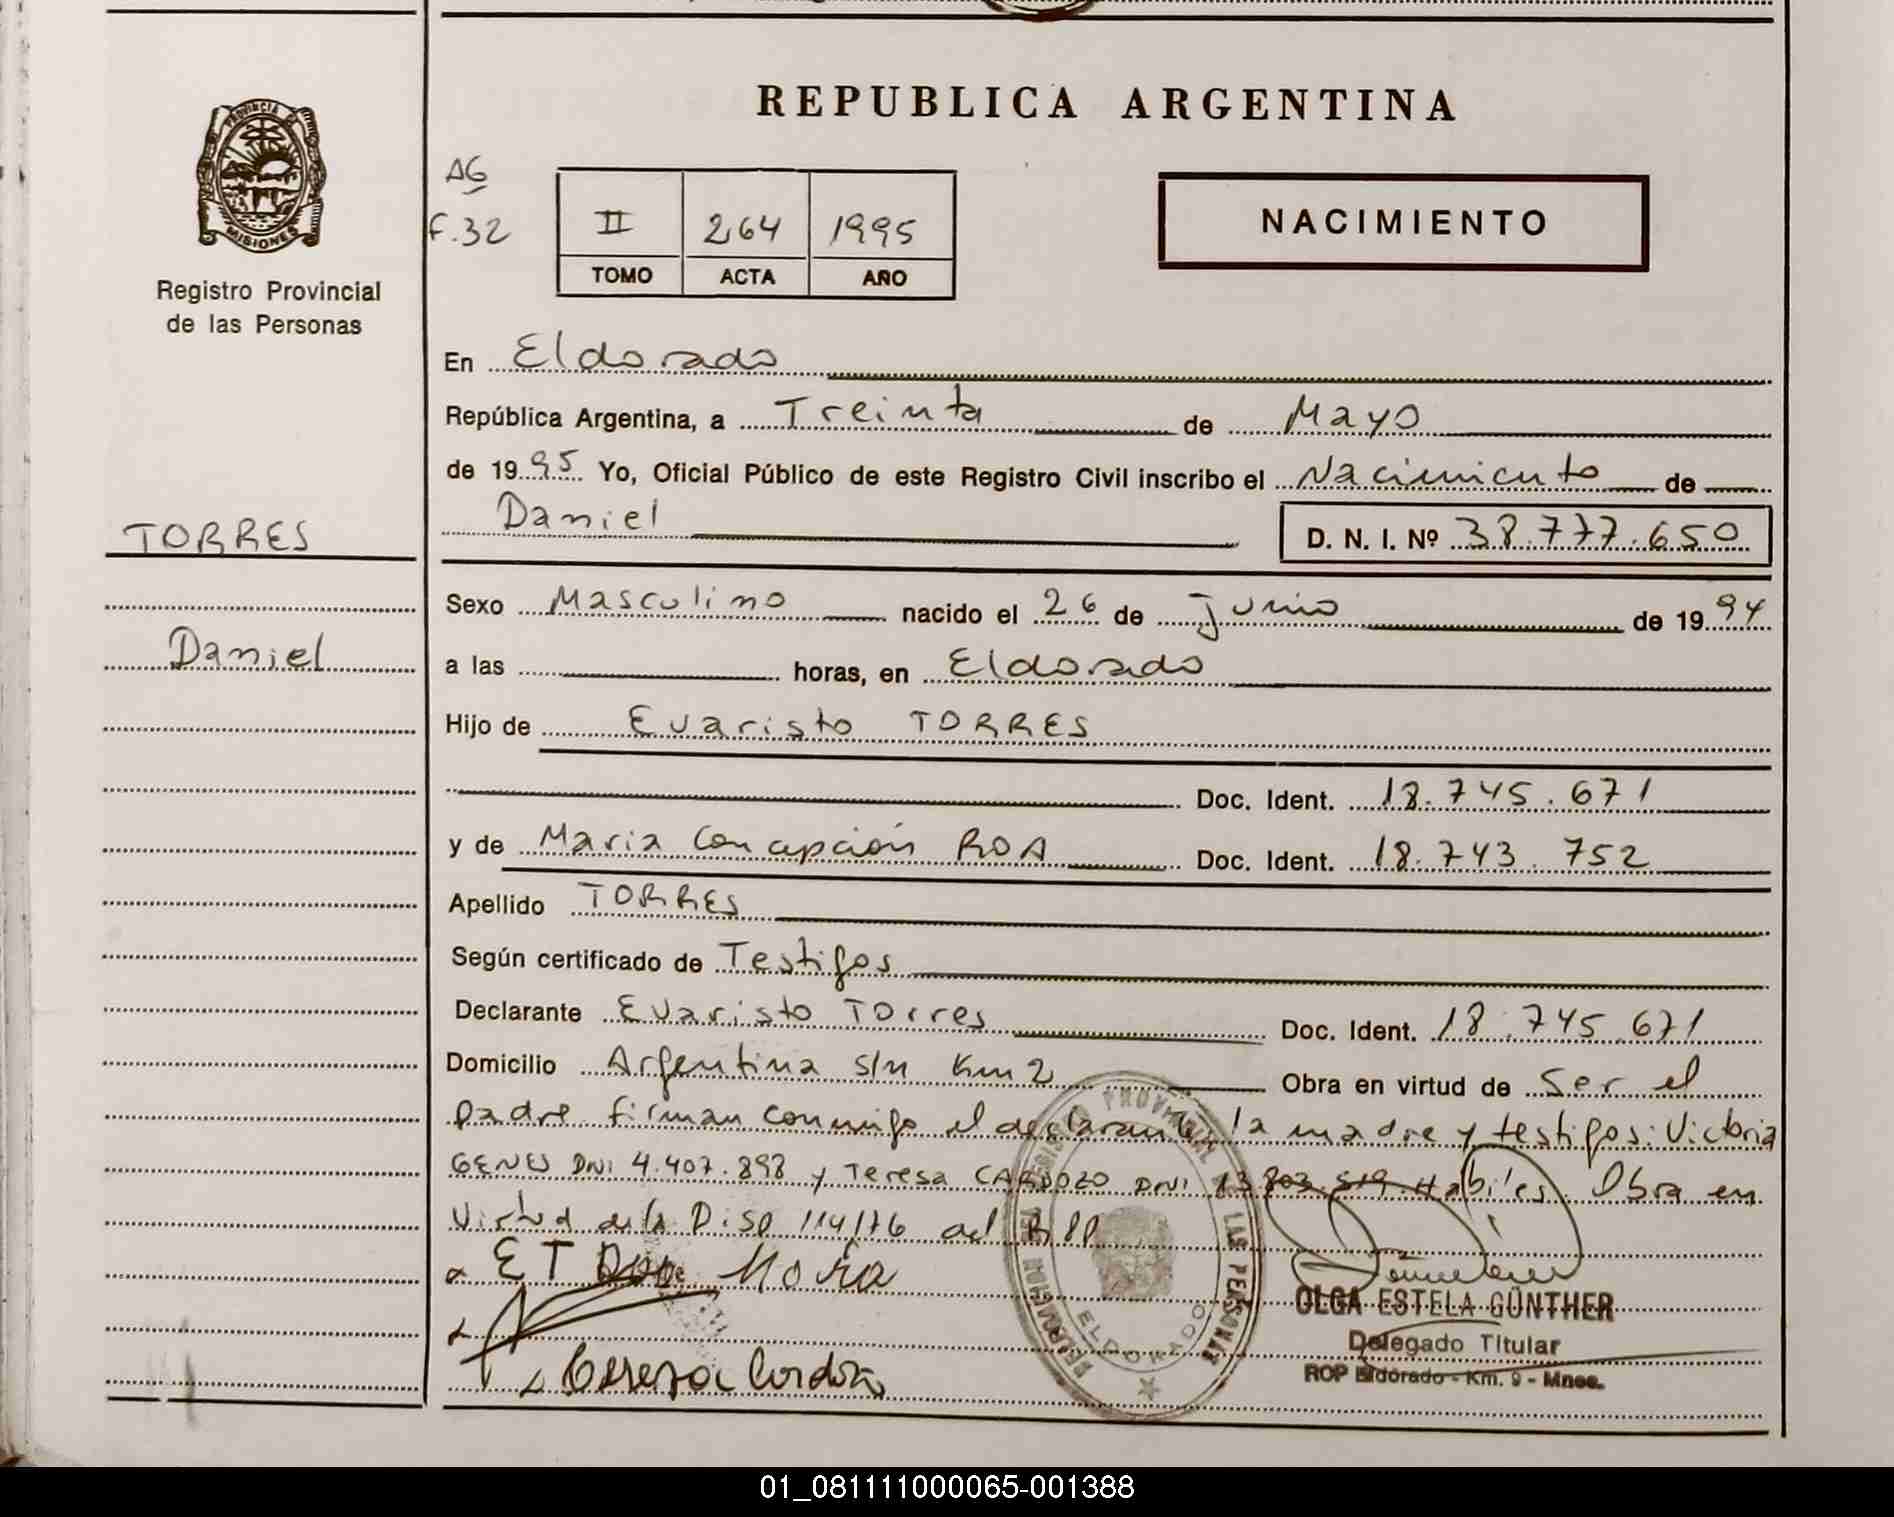 REPUBLICA ARGENTINA
PROVINCIA DE
MISIONES
Registro Provincial
de las Personas
AG
F.32
II 264 1995
TOMO ACTA AÑO
NACIMIENTO
En Eldorado
República Argentina, a Treinta de Mayo
de 1995 Yo, Oficial Público de este Registro Civil inscribo el Nacimiento de
Daniel D. N. I. Nº 38.777.650
TORRES
Daniel
Sexo Masculino nacido el 26 de Junio de 1994
a las horas, en Eldorado
Hijo de Evaristo TORRES
Doc. Ident. 18.745.671
y de Maria Concepción ROA Doc. Ident. 18.743.752
Apellido TORRES
Según certificado de Testigos
Declarante Evaristo Torres Doc. Ident. 18.745.671
Domicilio Argentina s/n Km 2 Obra en virtud de Ser el
padre firman conmigo el declarante la madre y testigos: Victoria
GENES DNI 4.407.898 y Teresa CARDOZO DNI 13.803.519 Habiles Obra en
Virtud de la Disp 114/76 del RPP
E T
ELDORADO
OLGA ESTELA GÜNTHER
Delegado Titular
ROP Eldorado - Km. 9 - Mnes.
01_081111000065-001388